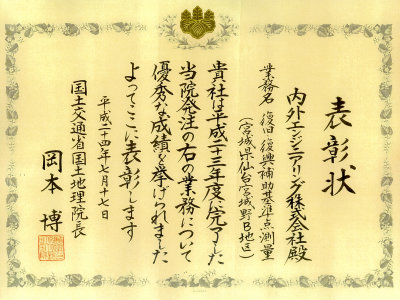 表彰状
内外エンジニアリング株式会社殿
業務名 復旧・復興補助基準点測量
(宮城県仙台宮城野B地区)
貴社は平成二十三年度完了した
当院発注の右の業務について
優秀な成績を挙げられました
よってここに表彰します
平成二十四年七月十七日
国土交通省国土地理院長
岡本 博